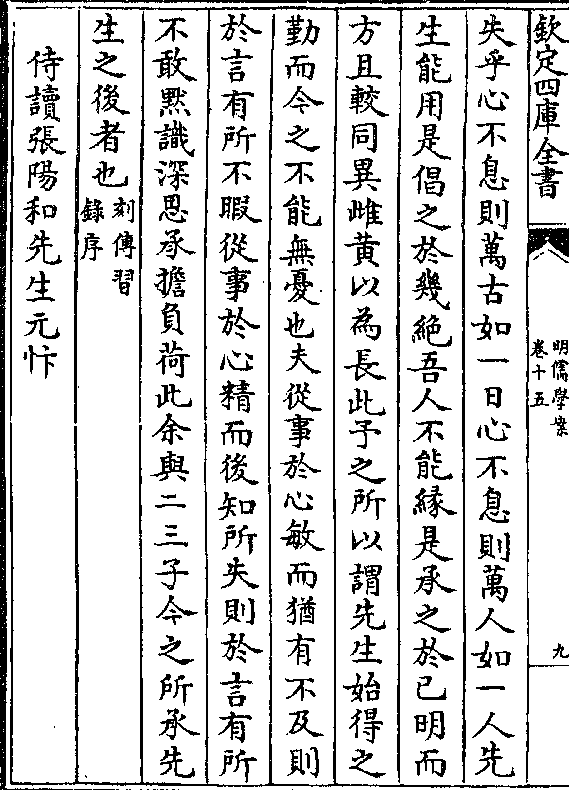 欽定四庫全書
明儒學案
卷十五
九
失乎心不息則萬古如一日心不息則萬人如一人先
生能用是倡之於幾絕吾人不能緣是承之於已明而
方且較同異雌黃以為長此予之所以謂先生始得之
勤而今之不能無憂也夫從事於心敏而猶有不及則
於言有所不暇從事於心精而後知所失則於言有所
不敢黙識深思承擔負荷此余與二三子今之所承先
生之後者也刻傳習
錄序
侍讀張陽和先生元忭